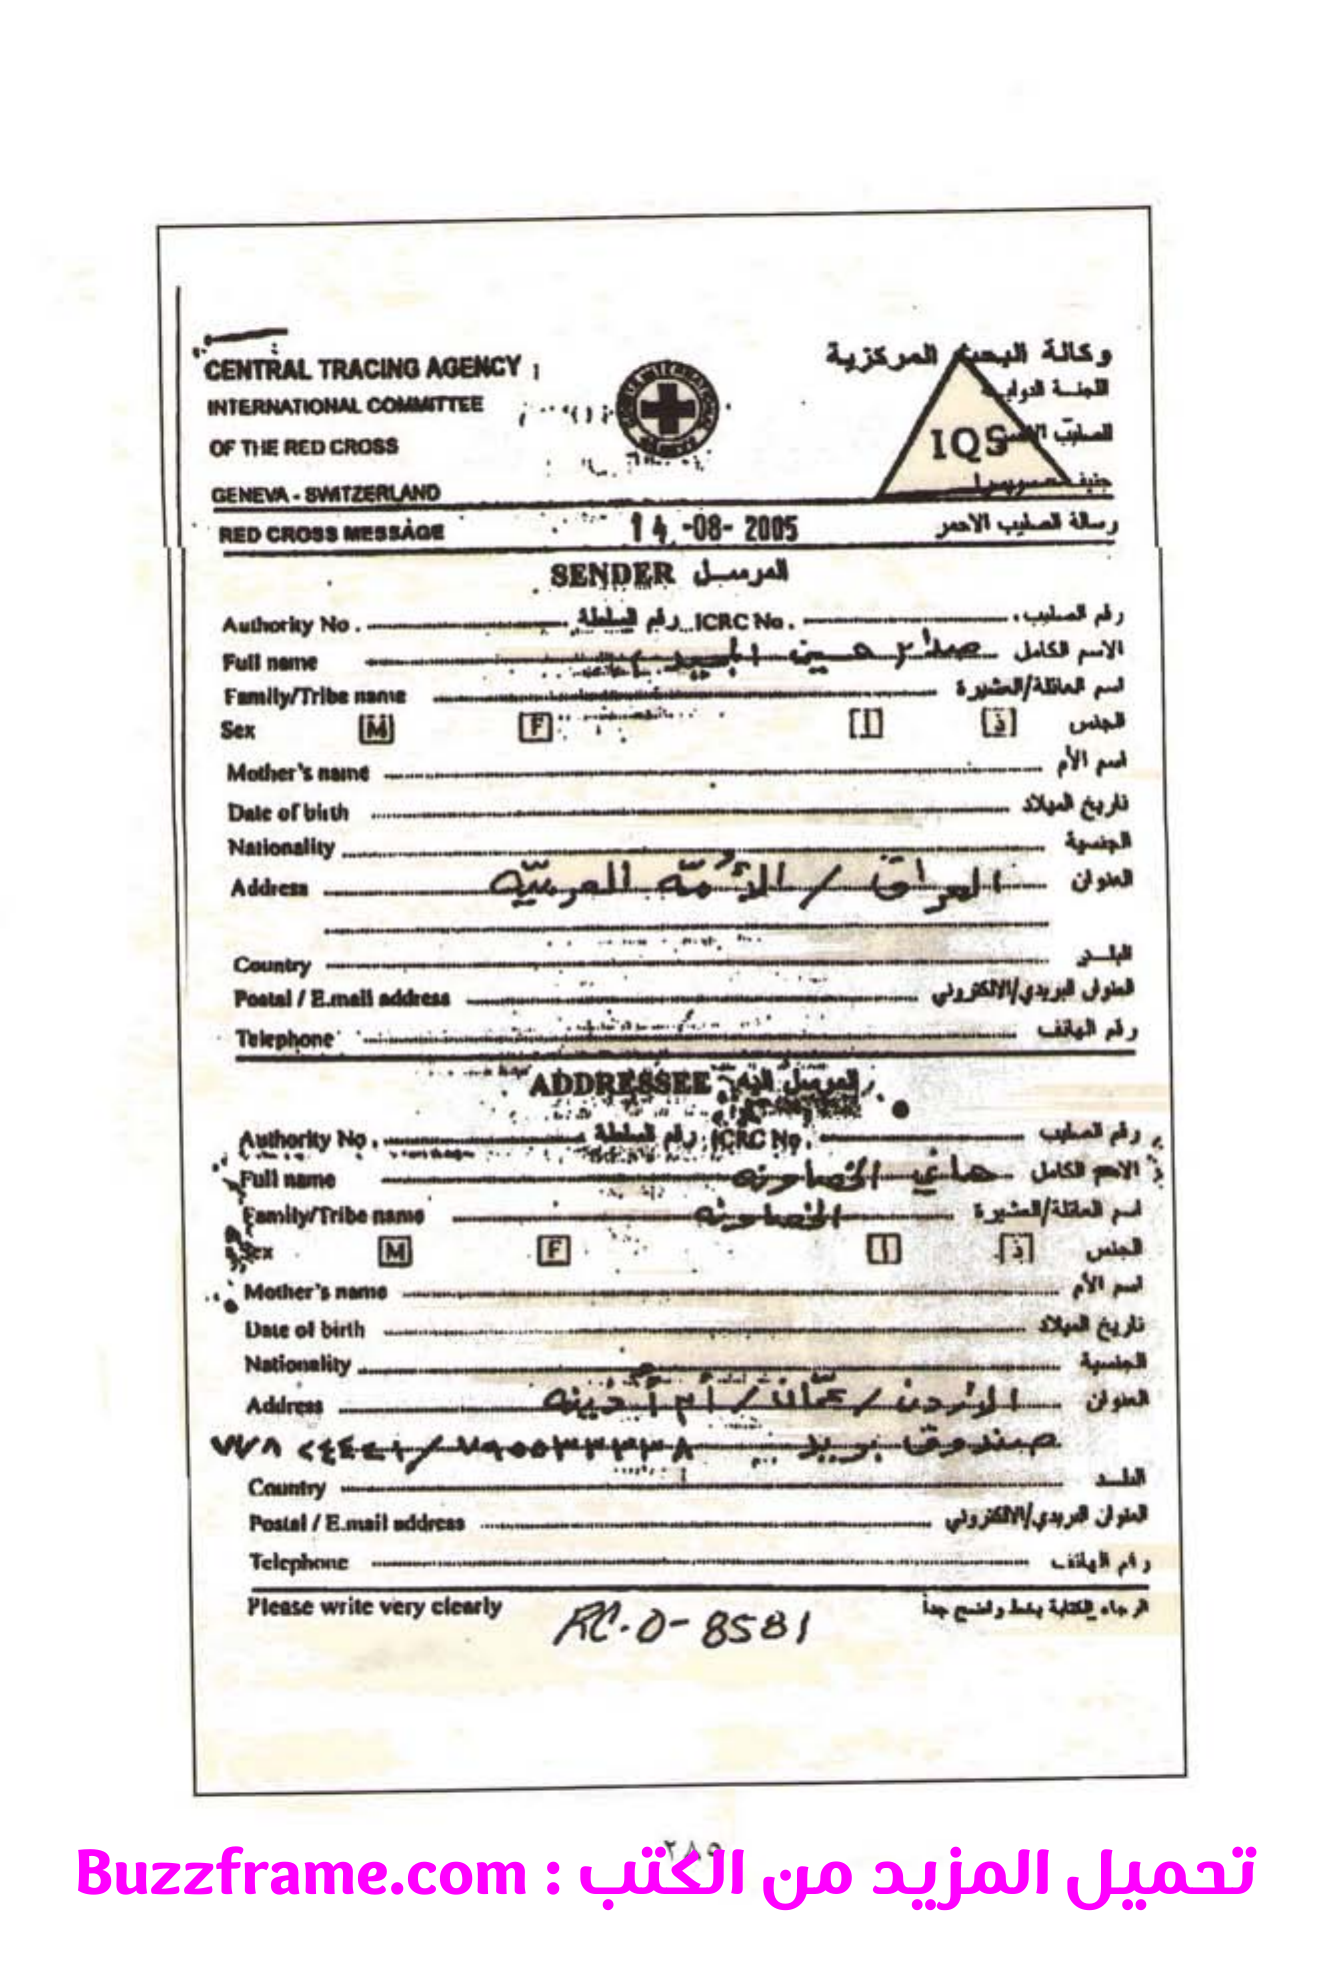 CENTRAL TRACING AGENCY وكالة البحث المركزية
INTERNATIONAL COMMITTEE اللجنة الدولية
OF THE RED CROSS الصليب
IQS
GENEVA - SWITZERLAND جنيف سويسرا
RED CROSS MESSAGE 14 -08- 2005 رسالة الصليب الاحمر
SENDER المرسل
Authority No . رقم السلطة ICRC No . رقم الصليب
Full name حسين المجيد الاسم الكامل
Family/Tribe name اسم العائلة/العشيرة
Sex M F أ ذ الجنس
Mother's name اسم الأم
Date of birth تاريخ الميلاد
Nationality الجنسية
Address العراق / الأمّة العربيّة العنوان
Country البلد
Postal / E.mail address العنوان البريدي/الالكتروني
Telephone رقم الهاتف
ADDRESSEE المرسل اليه
Authority No . رقم السلطة ICRC No . رقم الصليب
Full name هاني الخصاونه الاسم الكامل
Family/Tribe name الخصاونه اسم العائلة/العشيرة
Sex M F أ ذ الجنس
Mother's name اسم الأم
Date of birth تاريخ الميلاد
Nationality الجنسية
Address الأردن / عمّان / أم أذينه العنوان
صندوق بريد
Country البلد
Postal / E.mail address العنوان البريدي/الالكتروني
Telephone رقم الهاتف
Please write very clearly الرجاء الكتابة بخط واضح جداً
RC-0-8581
٢٨٥
تحميل المزيد من الكتب : Buzzframe.com